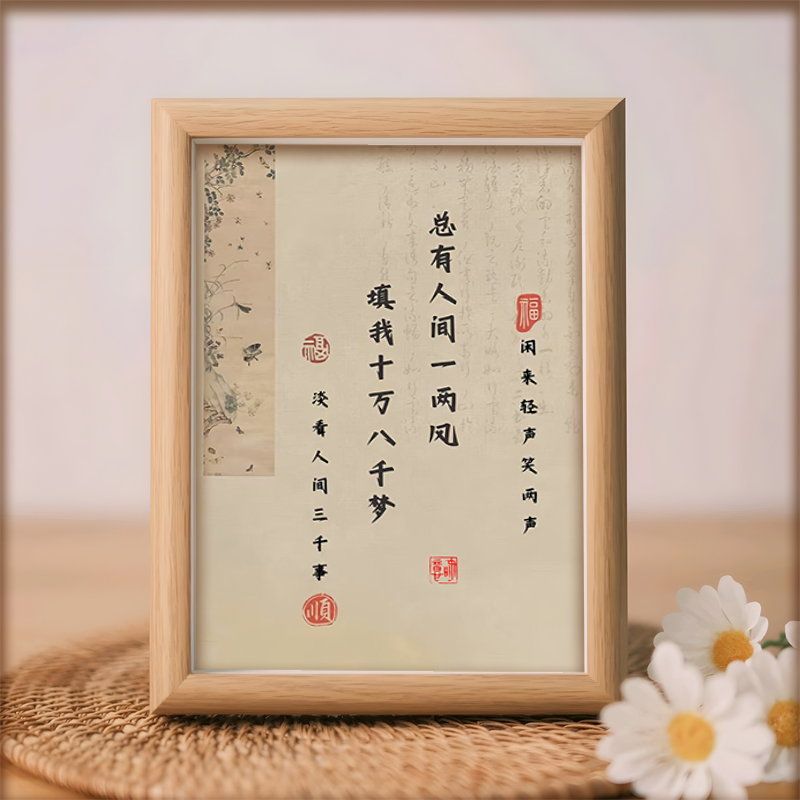 福
闲来轻声笑两声
总有人间一两风
填我十万八千梦
福
淡看人间三千事
顺